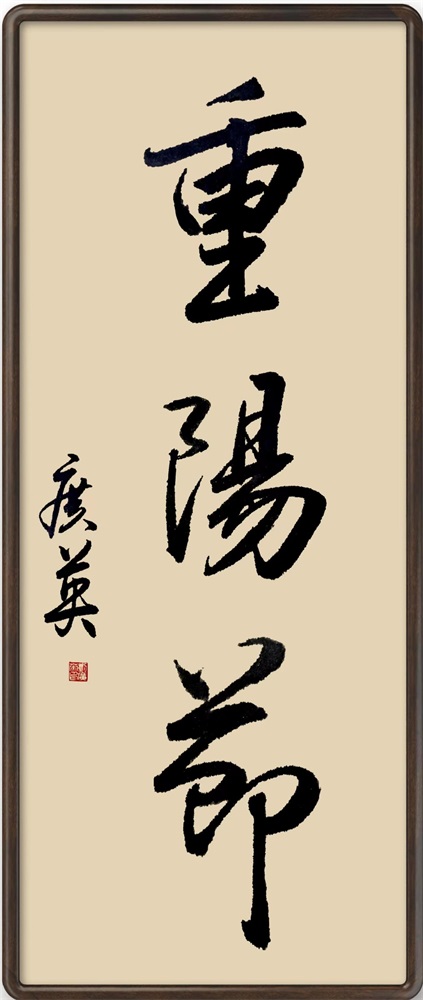 重陽節
廣英